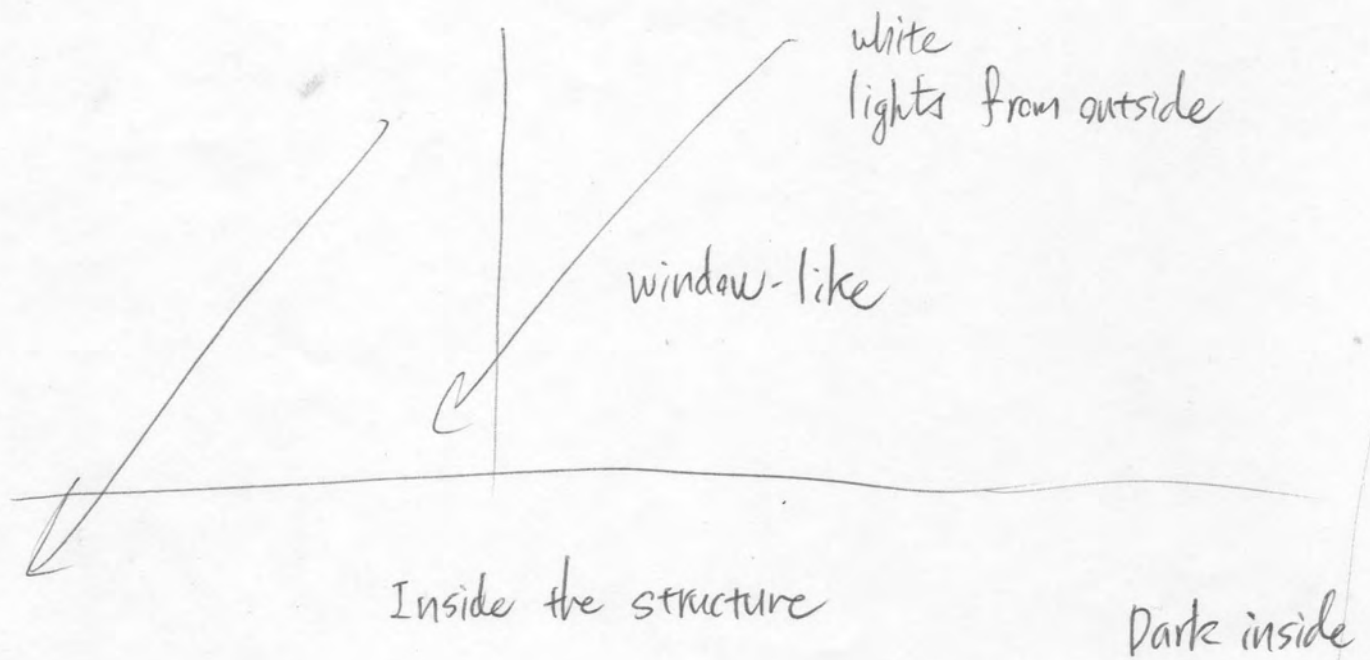 white
lights from outside
window-like
Inside the structure
Dark inside